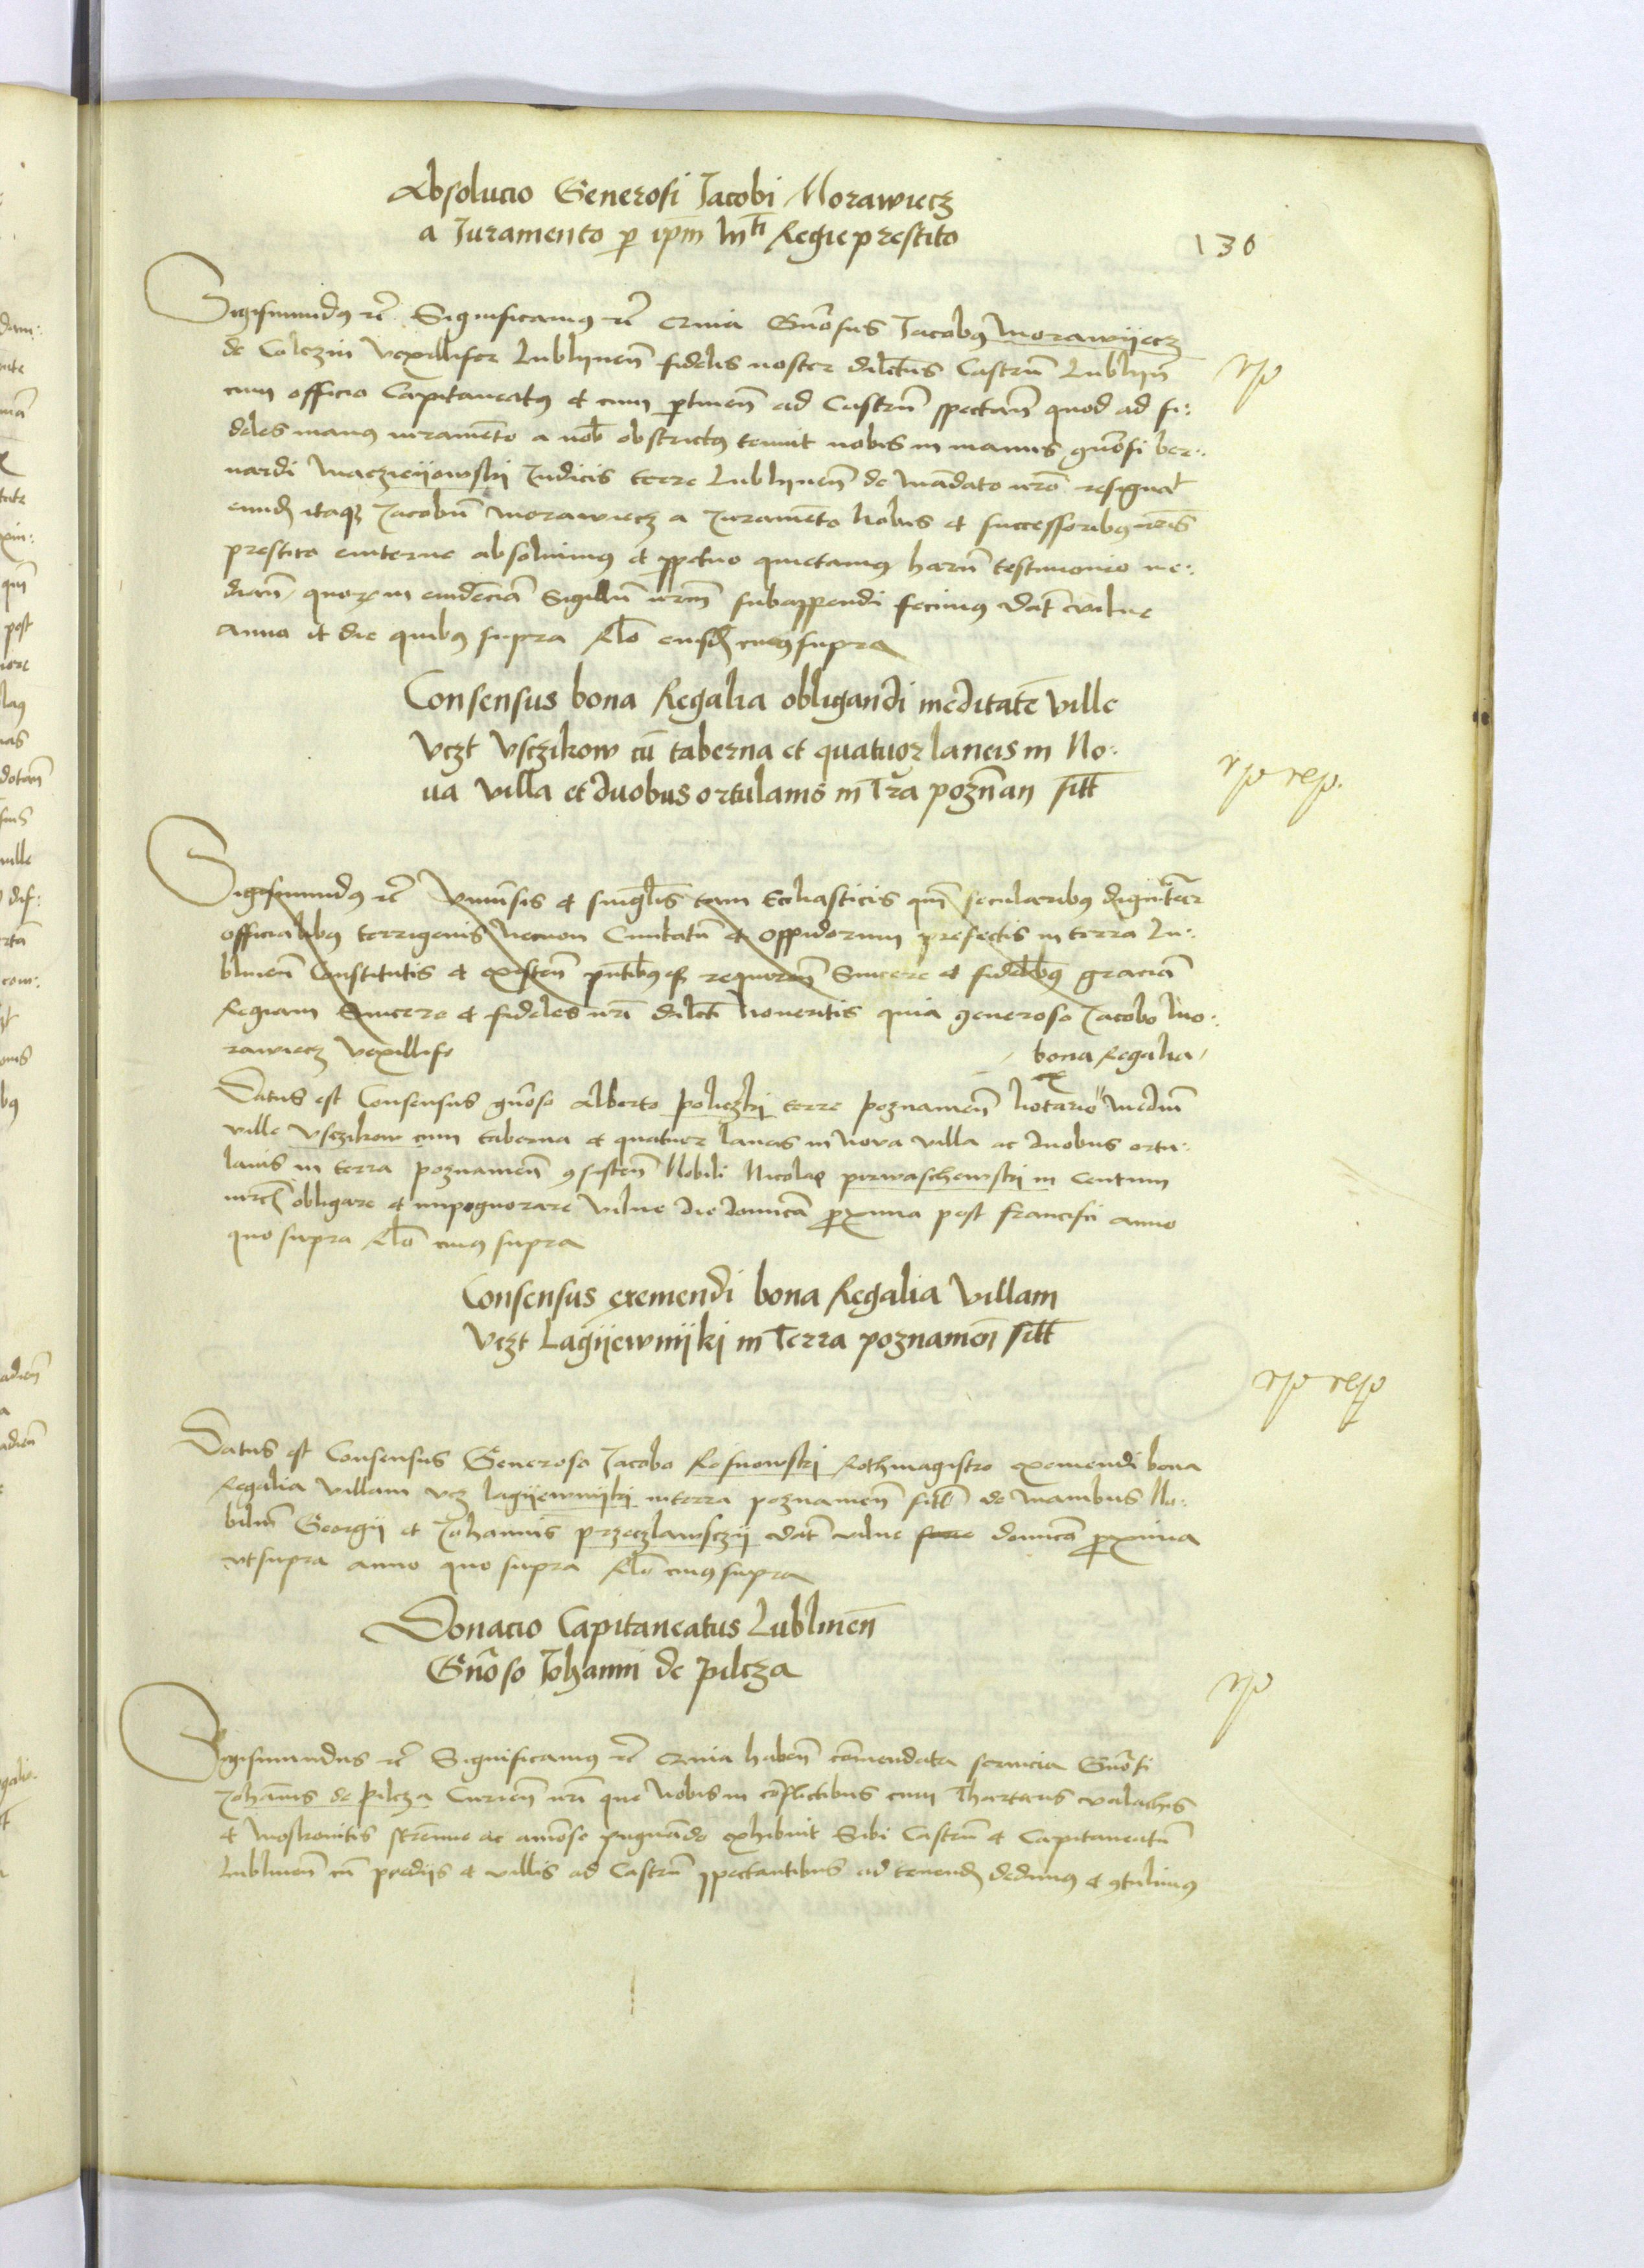 Absolucio Generosi Jacobi Morawiecz
a Juramento p ipm Mti Regie prestito
130
Sigismundus etc Significamus etc Quia Gnosus Jacobus Morawyecz
de Colczin Vexillifer Lublinen fidelis noster dilectus Castru Lublyn
cum officio Capitaneatus et cum ptinen ad Castru spectan quod ad fi:
deles manus iuramento a nob obstrictus tenuit nobis in manus gnosi ber:
nardi Maczieyowski Judicis terre Lublynen de Mandato nro resignat
eund itaq Jacobu Morawiecz a Juramento Nobis et successoribus nris
prestito absoluimus et ppetuo quietamus haru testimonio me:
dian quor in euidencia Sigillu nrm subappendi fecimus Dat vilne
anno et die quibus supra Rlo eiusd cuius supra
Consensus bona Regalia obligandi meditate ville
Vczt Vsczikow cu taberna et quatuor laneis in No:
ua villa et duobus ortulanis in Tra poznan sitt
rp resp.
Sigismundus etc Vniuisis et singlis tam Eccliasticis qm secularibus dignitar
officialibus terrigenis Necnon Ciuitatu et oppidorum prefectis in terra Lu:
blinen Constitutis et existen pntibus requiren Sincere et fidelibus gracia
Regiam Sincere et fideles nri dilecti Noueritis quia generoso Jacobo Mo:
rawiecz Vexillife bona Regalia
Datus est Consensus gnoso Alberto policzki terre poznanien Notario mediu
ville Vsczikow cum taberna et quatuor laneis in Nova villa ac duobus ortu:
lanis in terra poznanien 9sisten Nobili Nicolao pirwaschewski in Centum
mrcs obligare et impignorare Vilne die dominica pxima post francisci anno
quo supra Rlo cuius supra
Consensus exemendi bona Regalia Villam
Vczt Lagyewnyki in Terra poznanien sitt
Datus est Consensus Generoso Jacobo Rosnowski Rothmagistro exemendi bona
Regalia Villam vcz lagyewnyki in terra poznanien sit de manibus No:
biliu Georgii et Johannis przeczlawsczy Dat vilne dominica pxima
vt supra anno quo supra Rlo cuius supra
Donacio Capitaneatus Lublinen
Gnoso Johanni de Pilcza
Sigismundus etc Significamus etc Quia haben comendata seruicia Gnosi
Johannis de Pilcza Curien nri que Nobis in coflictibus cum Thartaris Valachis
et Moskouitis strennue ac animose pugnado exhibuit Sibi Castru et Capitaneatu
Lublinen cu prediis et villis ad Castru spectantibus ad tenend dedimus et 9tulimus